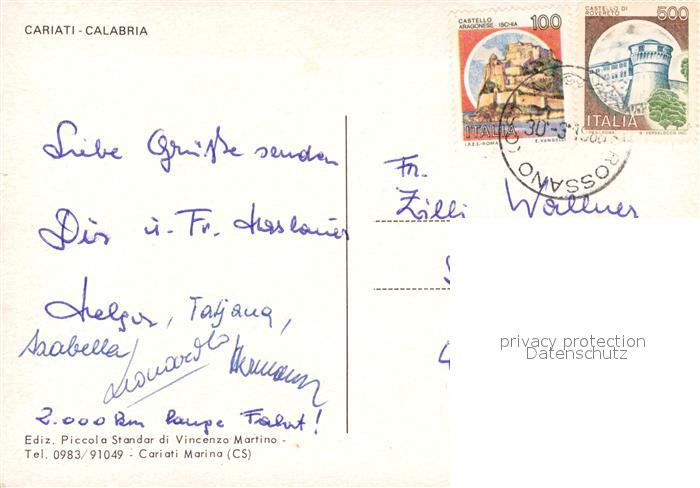 CARIATI - CALABRIA
CASTELLO
ARAGONESE - ISCHIA
100
ITALIA
I.P.Z.S.-ROMA E. VANGELLI
CASTELLO DI
ROVERETO
500
ITALIA
30-3-19
ROSSANO
Liebe Grüße senden
Dir u. Fr.
Helga, Tatjana,
Isabella
Leonardo Hermann
2.000 km lange Fahrt!
Fr.
Zilli Wallner
privacy protection
Datenschutz
Ediz. Piccola Standar di Vincenzo Martino -
Tel. 0983/91049 - Cariati Marina (CS)